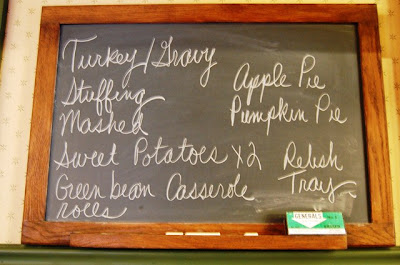 Turkey/Gravy
Stuffing
Mashed
Sweet Potatoes x2
Green bean Casserole
rolls
Apple Pie
Pumpkin Pie
Relish
Tray
GENERAL'S